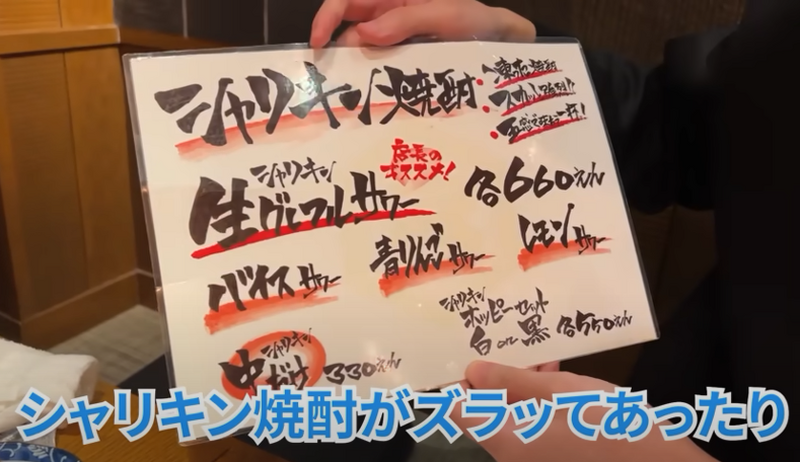 シャリキン焼酎
凍死焼酎
店長の
オススメ!
シャリキン
生グレフルサワー
各660えん
バイスサワー
青りんごサワー
レモンサワー
シャリキン
中だけ 330えん
シャリキン
ホッピーセット
白or黒 各550えん
シャリキン焼酎がズラッてあったり